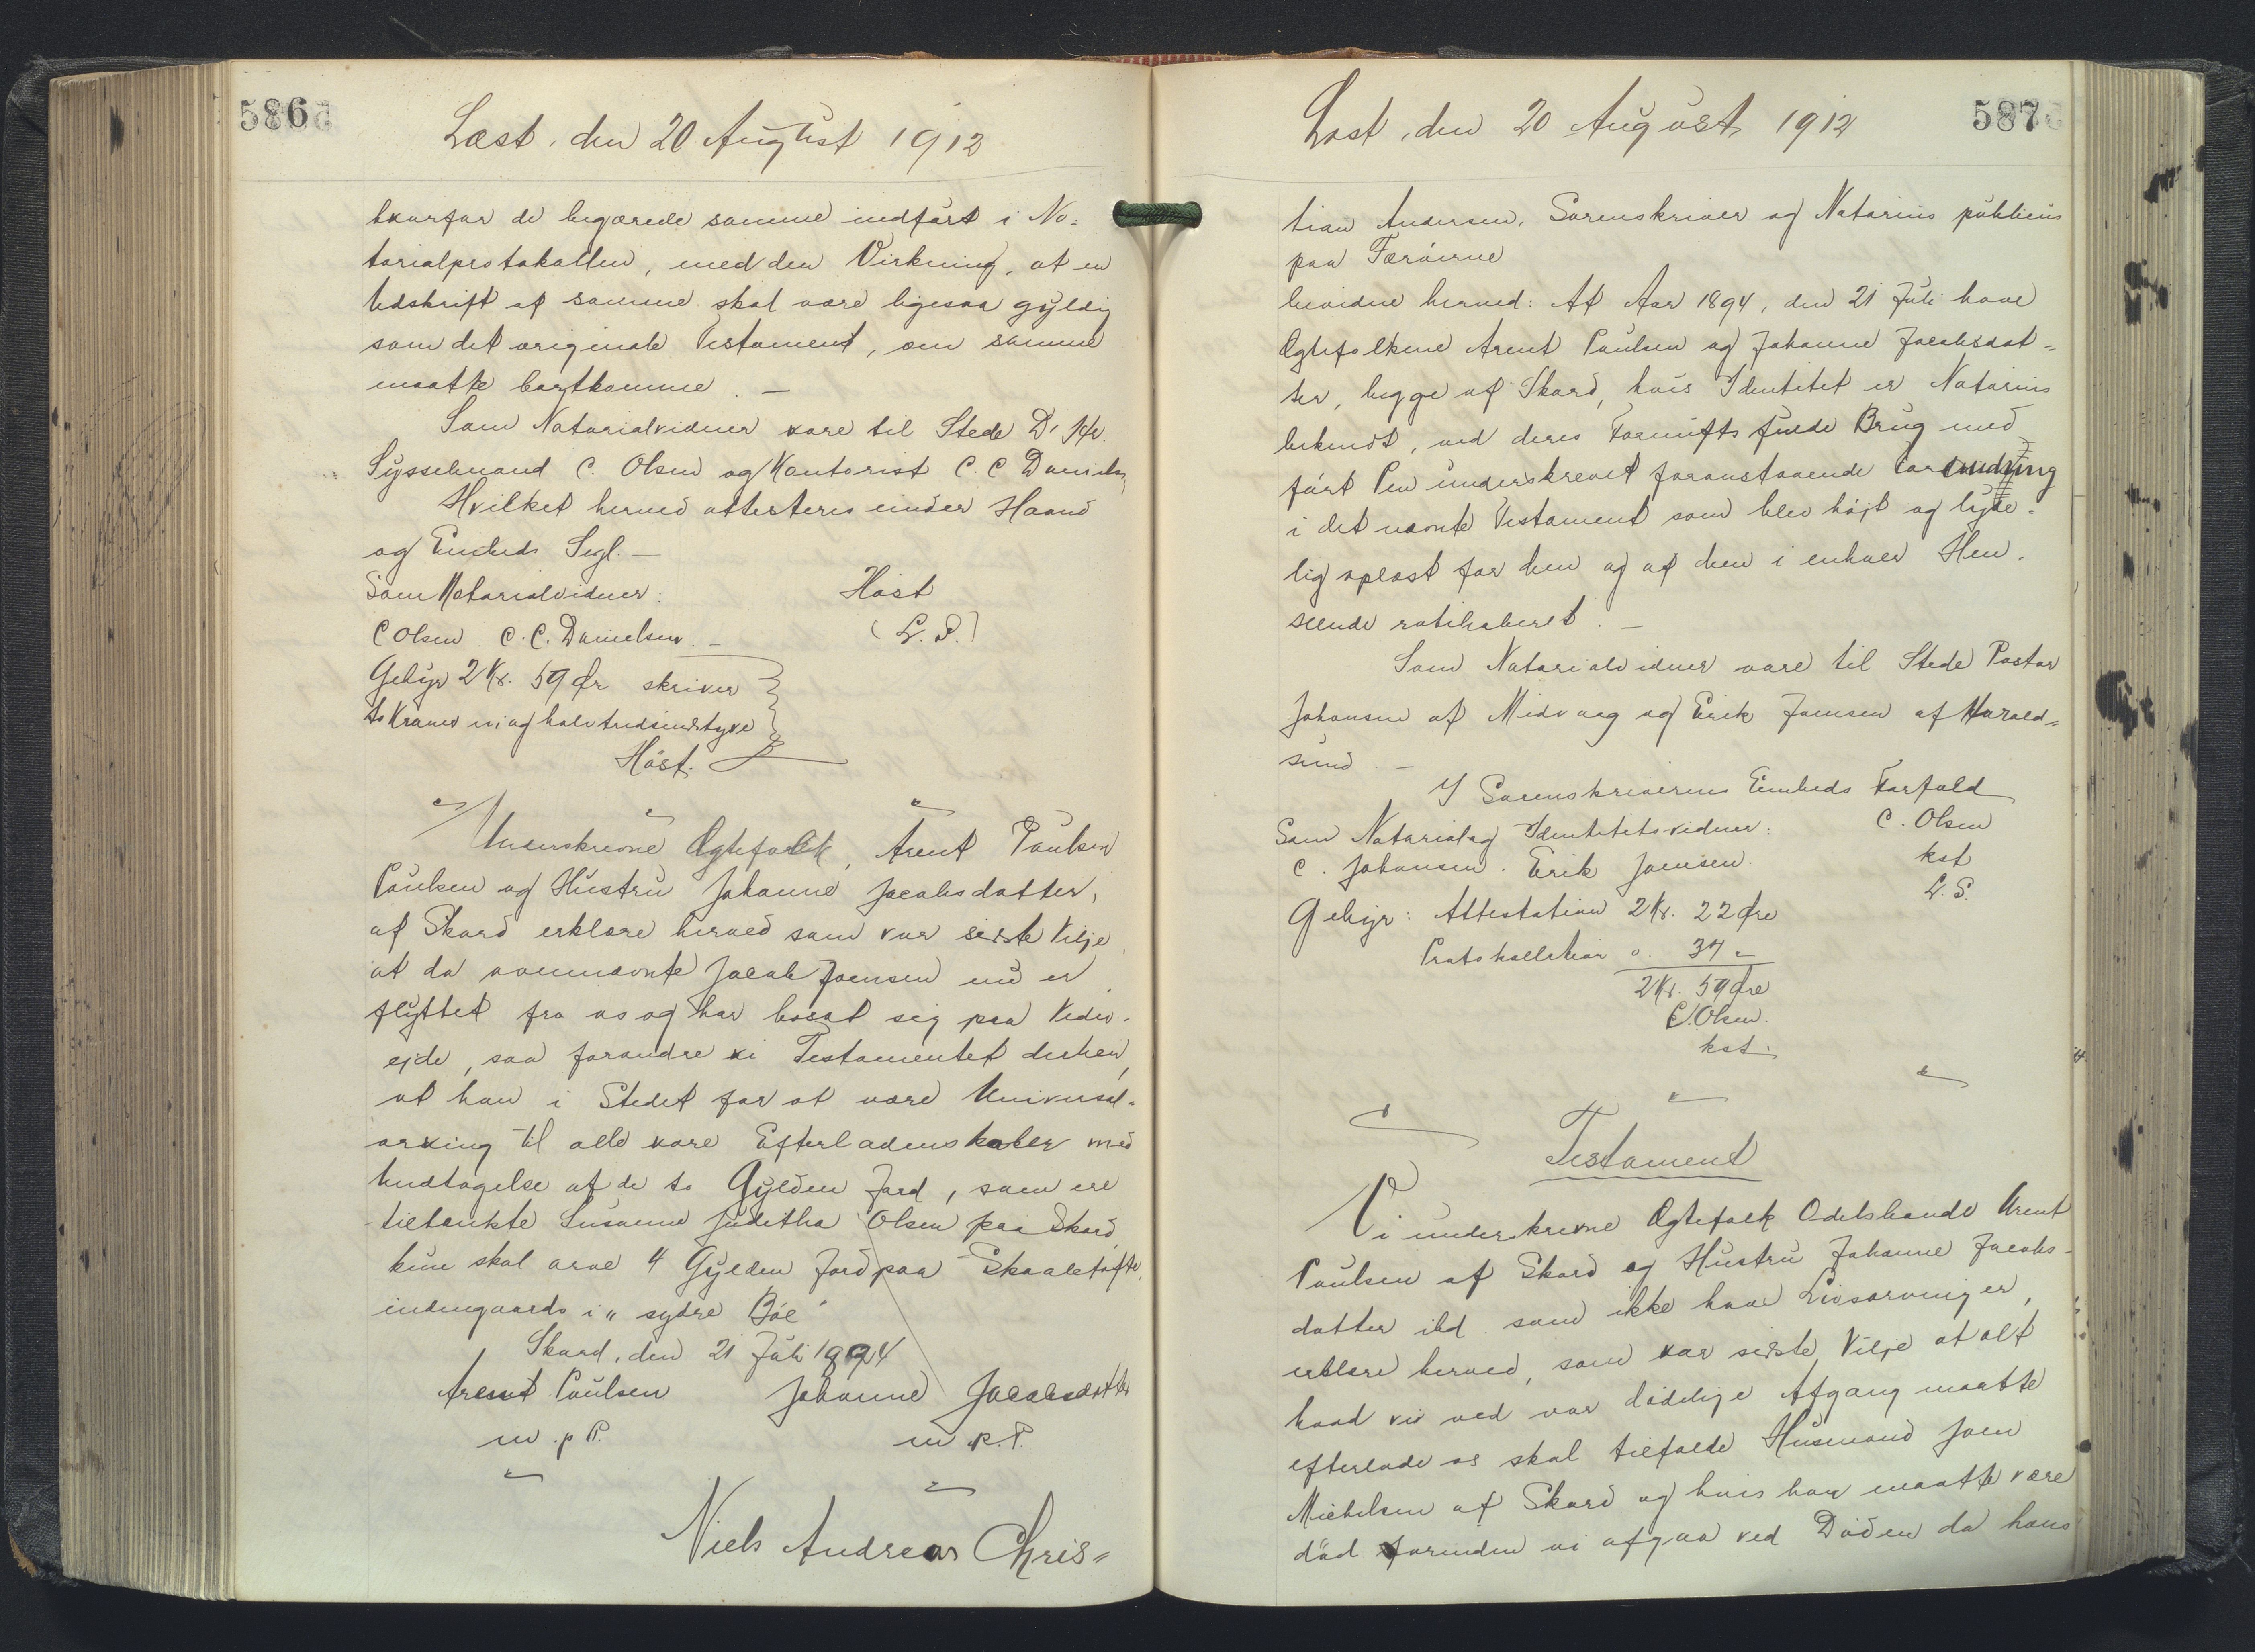 586
Læst, den 20 August 1912
hvorfor de begærede samme indført i No-
tarialprotokollen, med den Virkning, at en
Udskrift af samme skal være ligesaa gyldig
som det originale Testament, om samme
maatte bortkomme. —
Som Notarialvidner vare til Stede D' Hr.
Sysselmand C. Olsen og Kontorist C. C Danielsen
Hvilket herved attesteres under Haand
og Embeds Segl. —
Som Notarialvidner: Høst
C Olsen C. C. Danielsen. — (L. S.)
Gebyr 2 Kr. 59 Øre skriver
to Kroner ni og halvtredsindstyve
Høst.
Underskrevne Ægtefolk, Arent Poulsen
Poulsen og Hustru Johanne Jacobsdatter,
af Skard erklære herved som vor sidste Vilje,
at da ovennævnte Jacob Joensen nu er
flyttet fra os og har bosat sig paa Vider-
ejde, saa forandre vi Testamentet derhen,
at han i Stedet for at være Universal-
arving til alle vore Efterladenskaber med
Undtagelse af de to Gylden Jord, som ere
tiltænkte Susanne Juditha Olsen paa Skard,
kun skal arve 4 Gylden Jord paa Skaaletofte,
indengaards i „ sydre Böe"
Skard, den 21 Juli 1894
Arent Poulsen Johanne Jacobsdatter
m. p P. m. p. P.
Niels Andreas Chris-
587
Læst, den 20 August 1912
tian Andersen, Sorenskriver og Notarius publicus
paa Færøerne
bevidne herved: At Aar 1894, den 21 Juli have
Ægtefolkene Arent Poulsen og Johanne Jacobsdat-
ter, begge af Skard, hvis Identitet er Notarius
bekendt, ved deres Fornufts fulde Brug med
ført Pen underskrevet foranstaaende Forandring
i det nævnte Testament som blev højt og tyde-
lig oplæst for dem og af dem i enhver Hen-
seende ratihaberet. —
Som Notarialvidner vare til Stede Pastor
Johansen af Midvaag og Erik Joensen af Harald-
sund. —
I Sorenskriverens Embeds Forfald
Som Notarial og Identitetsvidner: C. Olsen
C. Johansen. Erik Joensen. kst
L. S.
Gebyr: Attestation 2 Kr. 22 Øre
Protokollation 0. 37 "
2 Kr. 59 Øre
C. Olsen.
kst.
Testament
Vi underskrevne Ægtefolk Odelsbonde Arent
Poulsen af Skard og Hustru Johanne Jacobs-
datter ibd. som ikke have Livsarvinger,
erklære herved, som vor sidste Vilje at alt
hvad vi ved vor dødelige Afgang maatte
efterlade os skal tilfalde Husmand Joen
Michelsen af Skard og hvis han maatte være
död forinden vi afgaa ved Døden da hans